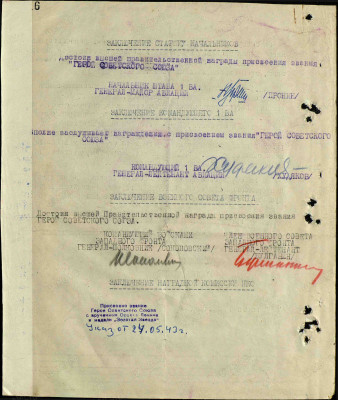 6
ЗАКЛЮЧЕНИЕ СТАРШИХ НАЧАЛЬНИКОВ
Достоин высшей правительственной награды присвоения звания
"ГЕРОЙ СОВЕТСКОГО СОЮЗА"
НАЧАЛЬНИК ШТАБА 1 ВА.
ГЕНЕРАЛ-МАЙОР АВИАЦИИ /ПРОНИН/
ЗАКЛЮЧЕНИЕ КОМАНДУЮЩЕГО 1 ВА
Вполне заслуживает награждения с присвоением звания "ГЕРОЙ СОВЕТСКОГО
СОЮЗА"
КОМАНДУЮЩИЙ 1 ВА.
ГЕНЕРАЛ-ЛЕЙТЕНАНТ АВИАЦИИ /ХУДЯКОВ/
ЗАКЛЮЧЕНИЕ ВОЕННОГО СОВЕТА ФРОНТА
Достоин высшей Правительственной награды присвоения звания
ГЕРОЙ СОВЕТСКОГО СОЮЗА.
КОМАНДУЮЩИЙ ВОЙСКАМИ ЧЛЕН ВОЕННОГО СОВЕТА
ЗАПАДНОГО ФРОНТА ЗАПАДНОГО ФРОНТА
ГЕНЕРАЛ-ПОЛКОВНИК /СОКОЛОВСКИЙ/ ГЕНЕРАЛ-ЛЕЙТЕНАНТ
/БУЛГАНИН/
ЗАКЛЮЧЕНИЕ НАГРАДНОЙ КОМИССИИ НКО
Присвоено звание
Героя Советского Союза
с вручением Ордена Ленина
и медали "Золотая Звезда"
Указ от 24.05.43г.